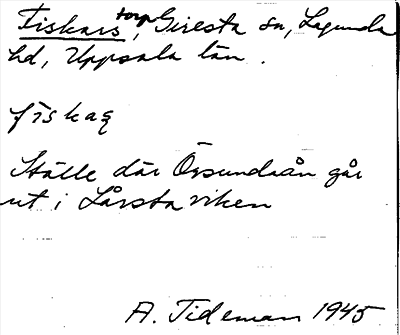 Fiskars, torp Giresta sn, Lagunda
hd, Uppsala län.
fiskaʂ
Ställe där Örsundaån går
ut i Lårstaviken
A. Tideman 1945